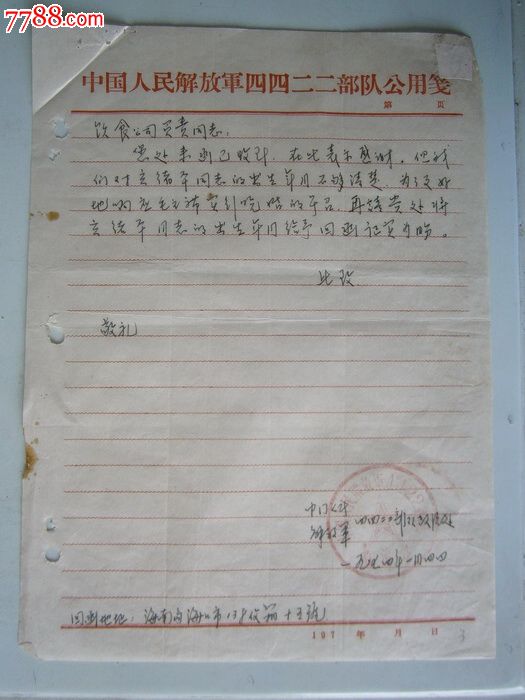 7788.com
中国人民解放軍四四二二部队公用箋
第 页
饮食公司负责同志：
您处来函已收到，在此表示感谢，但我
们对 绪年同志的出生年月不够清楚，为更好
地响应毛主席 晚婚的号召，再请贵处将
绪年同志的出生年月给予回函证实为盼。
此致
敬礼
中国人民
解放军 四四二二部队政治处
一九七四年一月四日
回函地址：海南岛海口市138信箱十五號
197 年 月 日
3